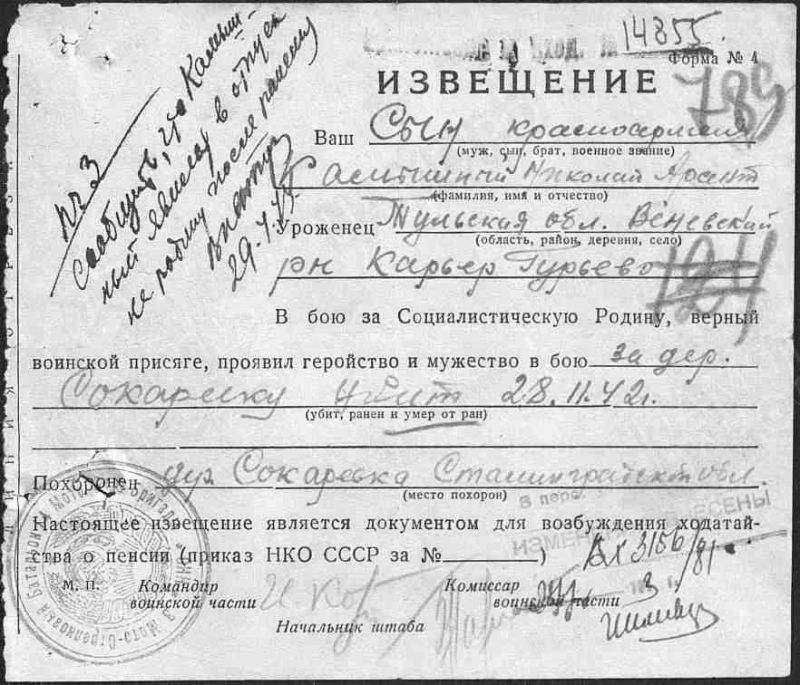 вход. №
14855
Форма № 4
ИЗВЕЩЕНИЕ
789
№ 3
Сообщить, что
ный явился в отпуск
на родину после ранения
29.
Ваш Сын красноармеец
(муж, сын, брат, военное звание)
Николай
(фамилия, имя и отчество)
Уроженец Тульская обл. Веневский
(область, район, деревня, село)
рн Карьер Гурьево
В бою за Социалистическую Родину, верный
воинской присяге, проявил геройство и мужество в бою за дер.
Сокаревку убит 28.11.42г.
(убит, ранен и умер от ран)
Похоронен дер Сокаревка Сталинградской обл.
(место похорон)
ИЗМЕНЕНИЯ ВНЕСЕНЫ
Настоящее извещение является документом для возбуждения ходатай-
ства о пенсии (приказ НКО СССР за № )
Вх 3156/81
М. П. Командир
воинской части
Комиссар
воинской части
Начальник штаба